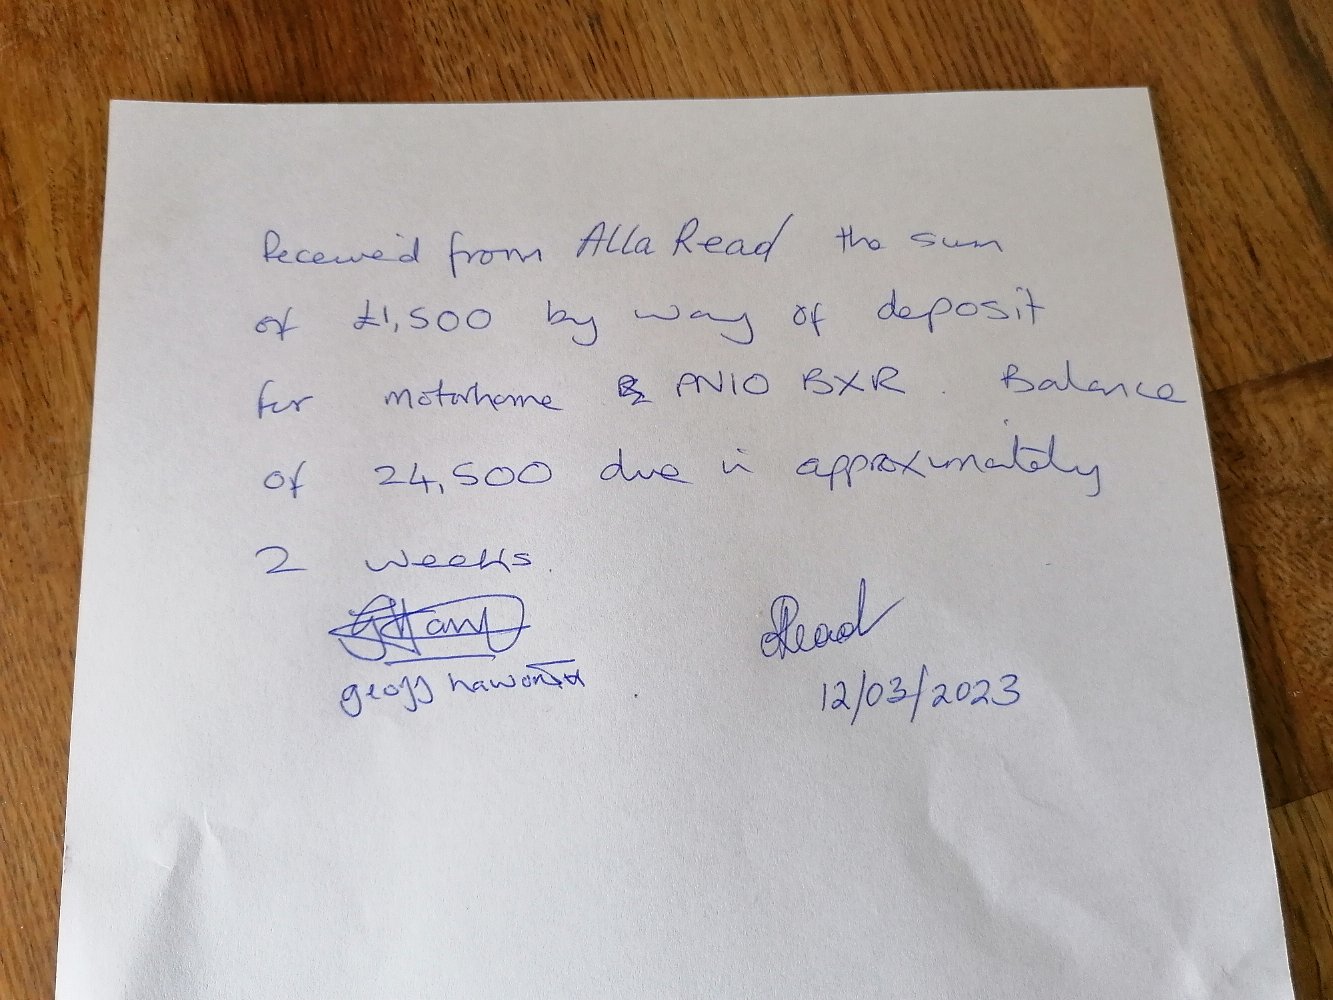 Received from Alla Read the sum
of £1,500 by way of deposit
for motorhome PN10 BXR. Balance
of 24,500 due in approximately
2 weeks.
Read
geoff haworth
12/03/2023